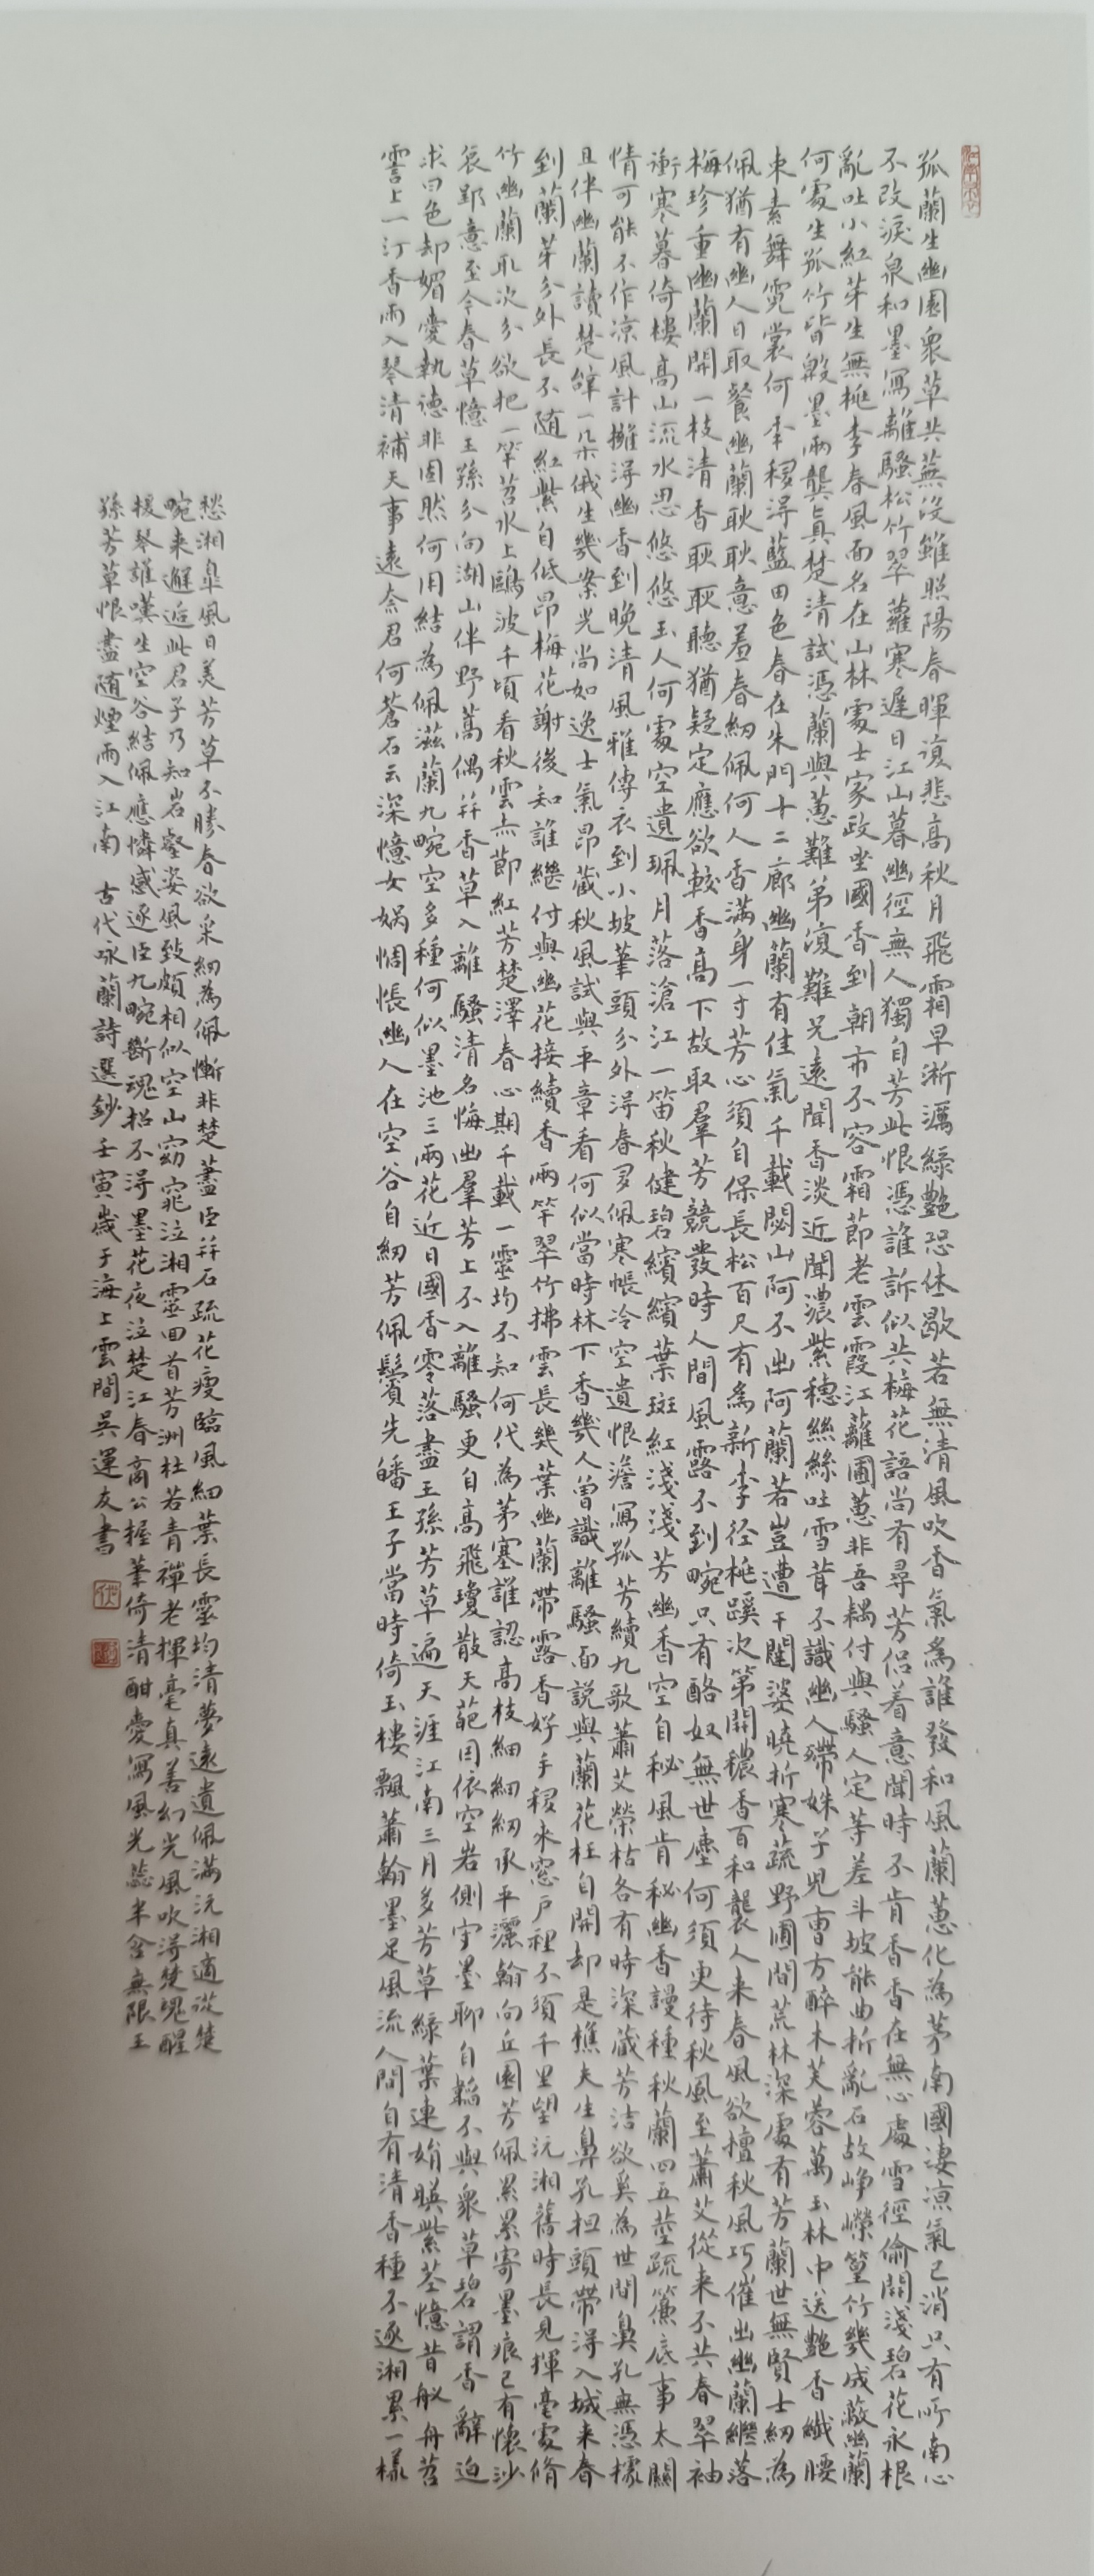 孤蘭生幽園眾草共蕪沒雖照陽春暉復悲高秋月飛霜早淅瀝綠艷恐休歇若無清風吹香氣為誰發和風蘭蕙化為茅南國淒涼氣已消只有所南心
不改淚泉和墨寫離騷松竹翠蘿寒遲日江山暮幽徑無人獨自芳此恨憑誰訴似共梅花語尚有尋芳侶着意聞時不肯香香在無心處雪徑偷開淺碧花冰根
亂吐小紅芽生無桃李春風面名在山林處士家政坐國香到朝市不容霜節老雲霞江蘺圃蕙非吾耦付與騷人定等差斗坡能曲折亂石故崢嶸篁竹幾成蔽幽蘭
何處生孤竹皆般墨兩龔真楚清試憑蘭與蕙難弟復難兄遠聞香淡近聞濃紫穗絲絲吐雪茸不識幽人滯姝子兜曹方醉木芙蓉萬玉林中送艷香纖腰
束素舞霓裳何年種得藍田色春在朱門十二廊幽蘭有佳氣千載閟山阿不出阿蘭若豈遭干闥婆曉折寒蔬野圃間荒林深處有芳蘭世無賢士紉為
佩猶有幽人日取餐幽蘭耿耿意羞春紉佩何人香滿身一寸芳心須自保長松百尺有為新李徑桃蹊次第開穠香百和襲人來春風欲擅秋風巧催出幽蘭繼落
梅珍重幽蘭開一枝清香耿耿聽猶疑定應欲較香高下故取羣芳競發時人間風露不到畹只有酪奴無世塵何須更待秋風至蕭艾從來不共春翠袖
衝寒暮倚樓高山流水思悠悠玉人何處空遺珮月落滄江一笛秋健碧繽繽葉斑紅淺淺芳幽香空自秘風肯秘幽香謾種秋蘭四五莖疏簾底事太關
情可能不作涼風計擁得幽香到晚清風雅傳衣到小坡筆頭分外得春多佩寒帳冷空遺恨澹寫孤芳續九歌蕭艾榮枯各有時深藏芳潔欲奚為世間鼻孔無憑據
且伴幽蘭讀楚辭一朵俄生幾案光尚如逸士氣昂藏秋風試與平章看何似當時林下香幾人曾識離騷面說與蘭花枉自開却是樵夫生鼻孔擔頭帶得入城來春
到蘭芽分外長不隨紅紫自低昂梅花謝後知誰繼付與幽花接續香兩竿翠竹拂雲長幾葉幽蘭帶露香好手移來窓戶裡不須千里望沅湘舊時長見揮毫處脩
竹幽蘭取次分欲把一竿苕水上鷗波千頃看秋雲赤節紅芳楚澤春心期千載一靈均不知何代為茅塞誰認高枝細細紉承平灑翰向丘園芳佩累累寄墨痕已有懷沙
哀郢意至今春草憶王孫分向湖山伴野蒿偶并香草入離騷清名悔出羣芳上不入離騷更自高飛瓊散天葩因依空岩側守墨聊自韜不與眾草碧謂香辭迫
求曰色却媚愛執德非固然何用結為佩滋蘭九畹空多種何似墨池三兩花近日國香零落盡王孫芳草遍天涯江南三月多芳草綠葉連娟映紫莖憶昔舣舟苕
霅上一汀香雨入琴清補天事遠奈君何蒼石云深憶女媧惆悵幽人在空谷自紉芳佩鬢先皤王子當時倚玉樓飄蕭翰墨足風流人間自有清香種不逐湘累一樣
愁湘皐風日美芳草不勝春欲采紉為佩慚非楚藎臣并石疏花瘦臨風細葉長靈均清夢遠遺佩滿沅湘適從楚
畹来邂逅此君子乃知岩壑姿風致頗相似空山窈窕泣湘靈回首芳洲杜若青禪老揮毫真善幻光風吹得楚魂醒
援琴誰嘆生空谷結佩應憐感逐臣九畹斷魂招不得墨花夜泣楚江春商公握筆倚清酣愛寫風光蕊半含無限王
孫芳草恨盡隨煙雨入江南 古代咏蘭詩選鈔壬寅歲于海上雲間吳運友書